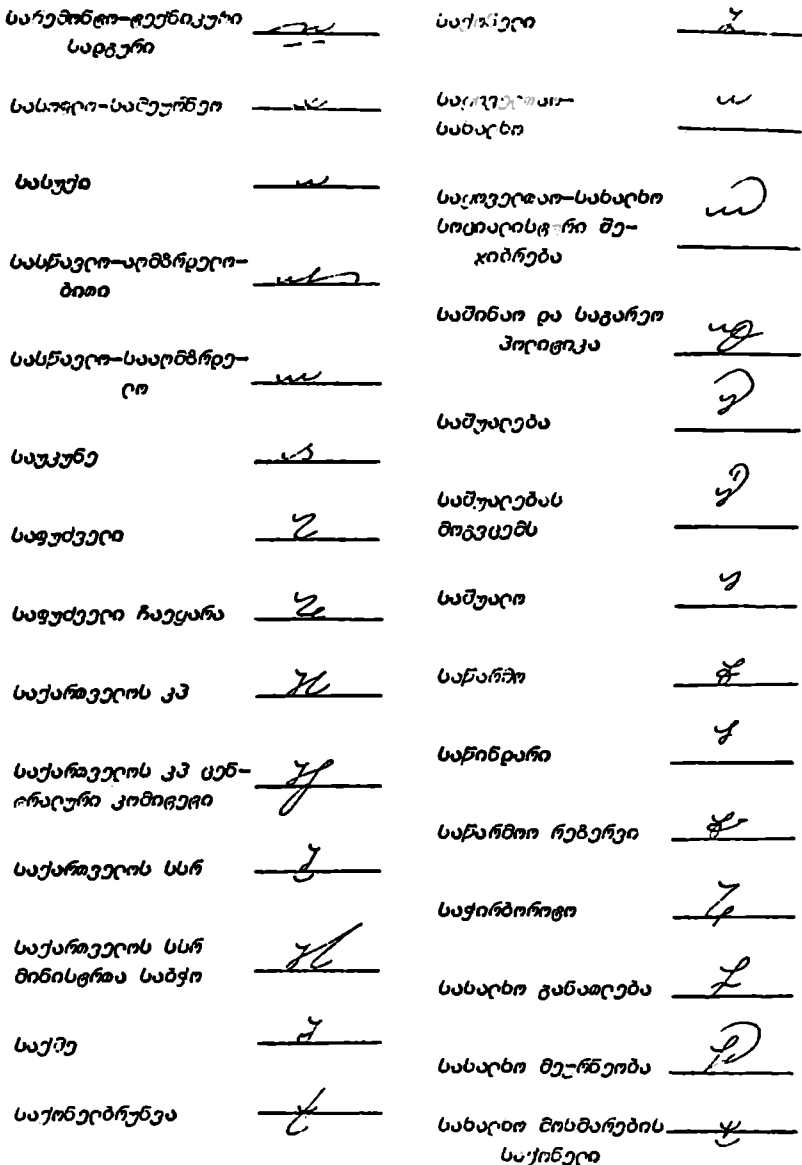 სარემონტო-ტექნიკური
სადგური
სასოფლო-სამეურნეო
სასუქი
სასწავლო-აღმზრდელო-
ბითი
სასწავლო-სააღმზრდე-
ლო
საუკუნე
საფუძველი
საფუძველი ჩაეყარა
საქართველოს კპ
საქართველოს კპ ცენ-
ტრალური კომიტეტი
საქართველოს სსრ
საქართველოს სსრ
მინისტრთა საბჭო
საქმე
საქონელბრუნვა
საქონელი
საყოველთაო-
სახალხო
საყოველთაო-სახალხო
სოციალისტური შე-
ჯიბრება
საშინაო და საგარეო
პოლიტიკა
საშუალება
საშუალებას
მოგვცემს
საშუალო
საწარმო
საწინდარი
საწარმოო რეზერვი
საჭირბოროტო
სახალხო განათლება
სახალხო მეურნეობა
სახალხო მოხმარების
საქონელი